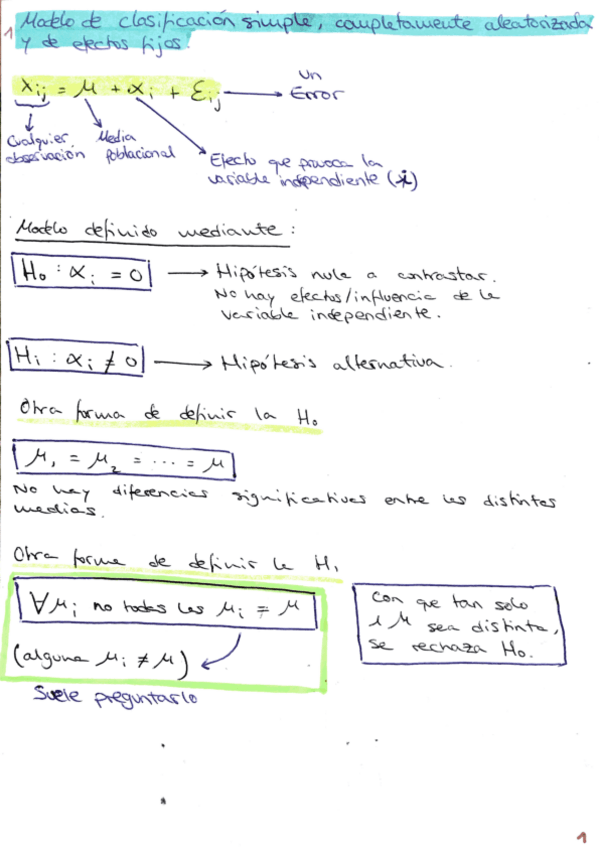 1 Modelo de clasificación simple, completamente aleatorizada
y de efectos fijos.
Xij = μ + αi + εij → Un Error
Cualquier observación
Media poblacional
Efecto que provoca la
variable independiente (i)
Modelo definido mediante:
H₀ : αi = 0 → Hipótesis nula a contrastar.
No hay efectos/influencia de la
variable independiente.
Hi : αi ≠ 0 → Hipótesis alternativa.
Otra forma de definir la H₀
μ₁ = μ₂ = ... = μ
No hay diferencias significativas entre las distintas
medias.
Otra forma de definir la H₁
∀μi no todas las μi = μ
(alguna μi ≠ μ)
Suele preguntarlo
Con que tan solo
1 μ sea distinta,
se rechaza H₀.
1